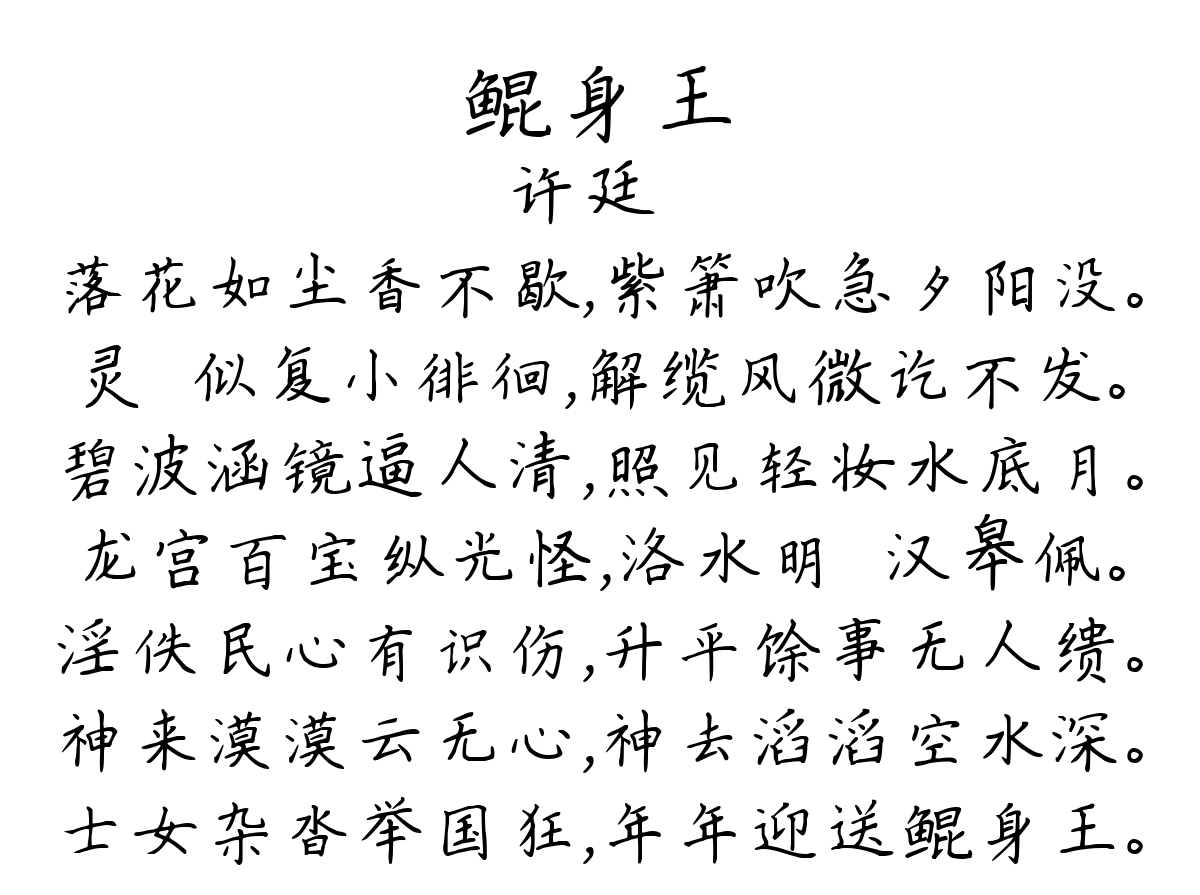 鲲身王
许廷
落花如尘香不歇,紫箫吹急夕阳没。
灵 似复小徘徊,解缆风微讫不发。
碧波涵镜逼人清,照见轻妆水底月。
龙宫百宝纵光怪,洛水明 汉皋佩。
淫佚民心有识伤,升平馀事无人缋。
神来漠漠云无心,神去滔滔空水深。
士女杂沓举国狂,年年迎送鲲身王。